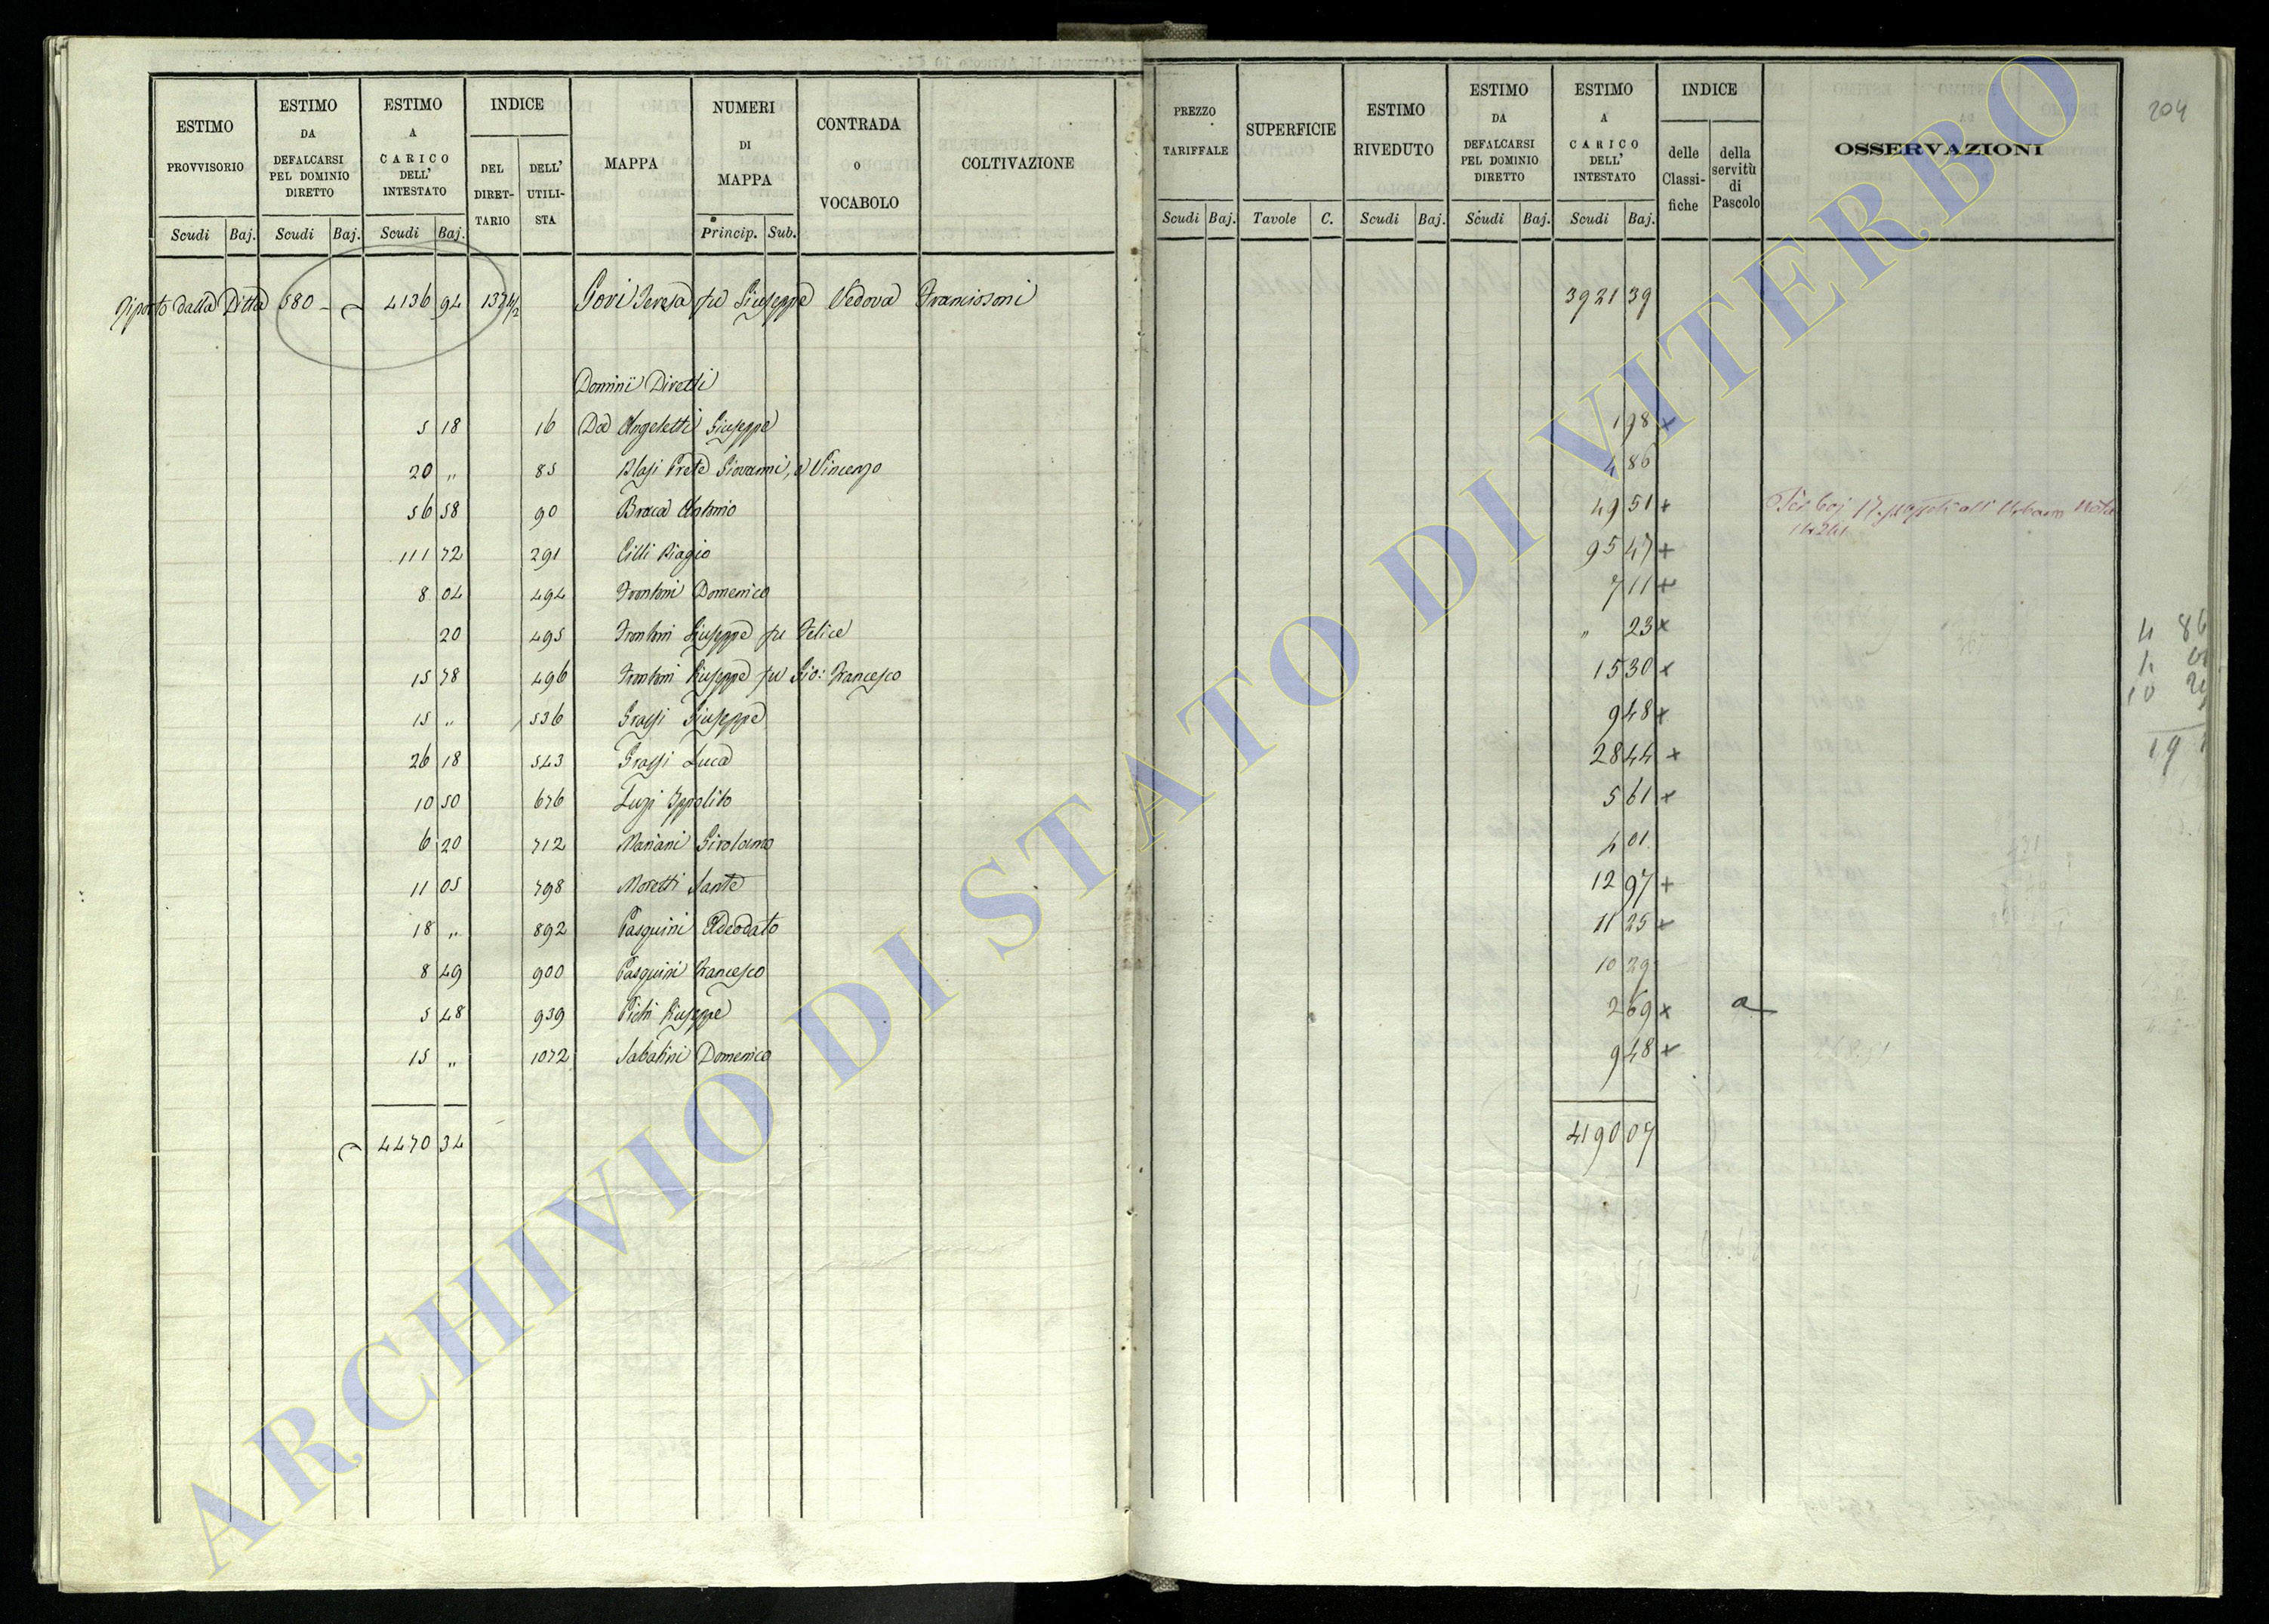 204
ESTIMO PROVVISORIO Scudi Baj.
ESTIMO DA DEFALCARSI PEL DOMINIO DIRETTO Scudi Baj.
ESTIMO A CARICO DELL' INTESTATO Scudi Baj.
INDICE DEL DIRETTARIO DELL' UTILISTA
MAPPA
NUMERI DI MAPPA Princip. Sub.
CONTRADA o VOCABOLO
COLTIVAZIONE
PREZZO TARIFFALE Scudi Baj.
SUPERFICIE Tavole C.
ESTIMO RIVEDUTO Scudi Baj.
ESTIMO DA DEFALCARSI PEL DOMINIO DIRETTO Scudi Baj.
ESTIMO A CARICO DELL' INTESTATO Scudi Baj.
INDICE delle Classifiche della servitù di Pascolo
OSSERVAZIONI
Riporto dalla Ditta 580 - 4136 94 Govi Teresa fu Giuseppe Vedova Franciosoni 3921 39
Dominii Diretti
5 18 16 Da Angeletti Giuseppe 1 98 +
20 " 85 Blasi Prete Giovanni, e Vincenzo 4 86
56 58 90 Braca Antonio 49 51 +
111 72 291 Cilli Biagio 95 47 +
8 04 494 Frontoni Domenico 7 11 +
20 495 Frontoni Giuseppe fu Felice " 23 x
15 78 496 Frontoni Giuseppe fu Gio: Francesco 15 30 x
15 " 536 Grassi Giuseppe 9 48 x
26 18 543 Grassi Luca 28 44 +
10 50 676 Luzi Ippolito 5 61 x
6 20 712 Mariani Girolamo 4 01
11 05 798 Moretti Sante 12 97 +
18 " 892 Pasquini Adeodato 11 25 x
8 49 900 Pasquini Francesco 10 29
5 48 939 Pichi Giuseppe 2 69 x a
15 " 1072 Sabatini Domenico 9 48 x
4470 34 4190 07
ARCHIVIO DI STATO DI VITERBO